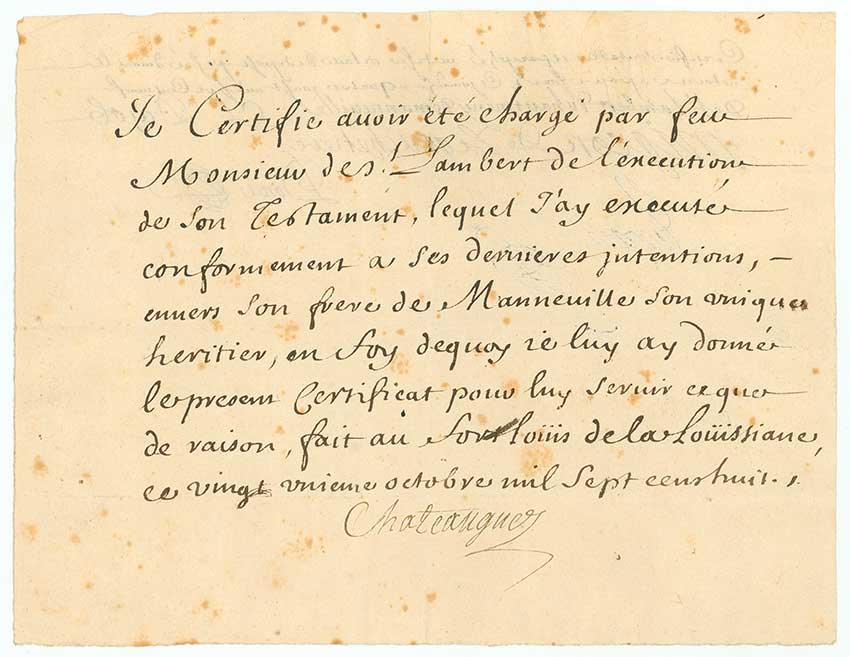 Je Certifie avoir été chargé par feu
Monsieur de St. Lambert de l'éxecution
de son Testament, lequel J'ay executé
conformement a ses dernieres jntentions, -
envers son frere de Manneville son vnique
heritier, en foy dequoy ie luy ay donné
le present Certificat pour luy servir ce que
de raison, fait au Fort loüis de la loüissiane,
ce vingt vnieme octobre mil sept cens huit.
Chateauguey